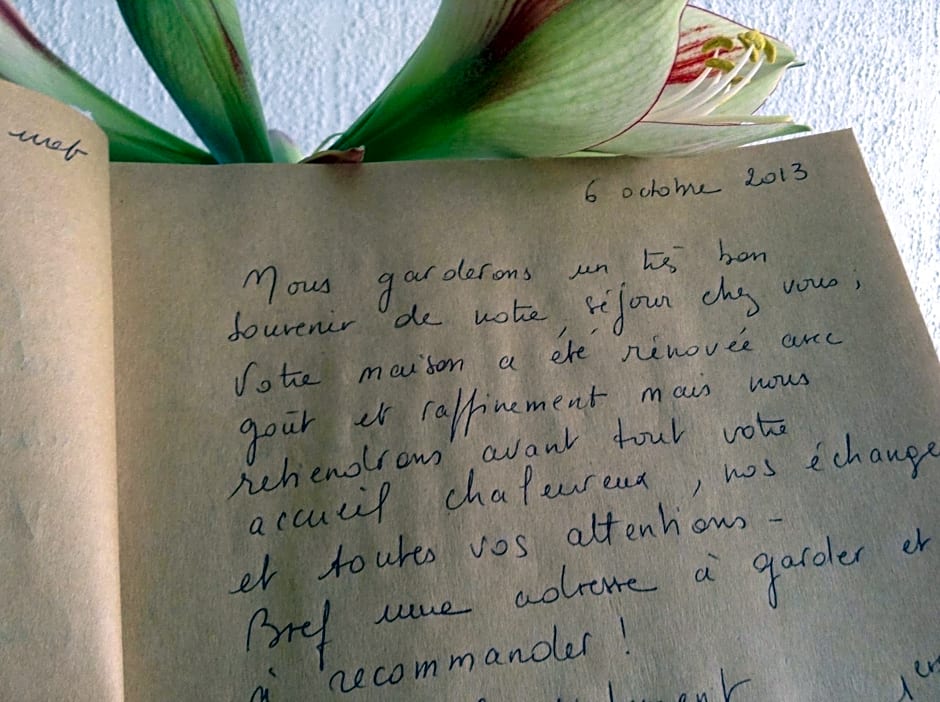 6 octobre 2013
Nous garderons un très bon
souvenir de notre séjour chez vous,
Votre maison a été rénovée avec
goût et raffinement mais nous
retiendrons avant tout votre
accueil chaleureux, nos échange
et toutes vos attentions -
Bref une adresse à garder et
à recommander !